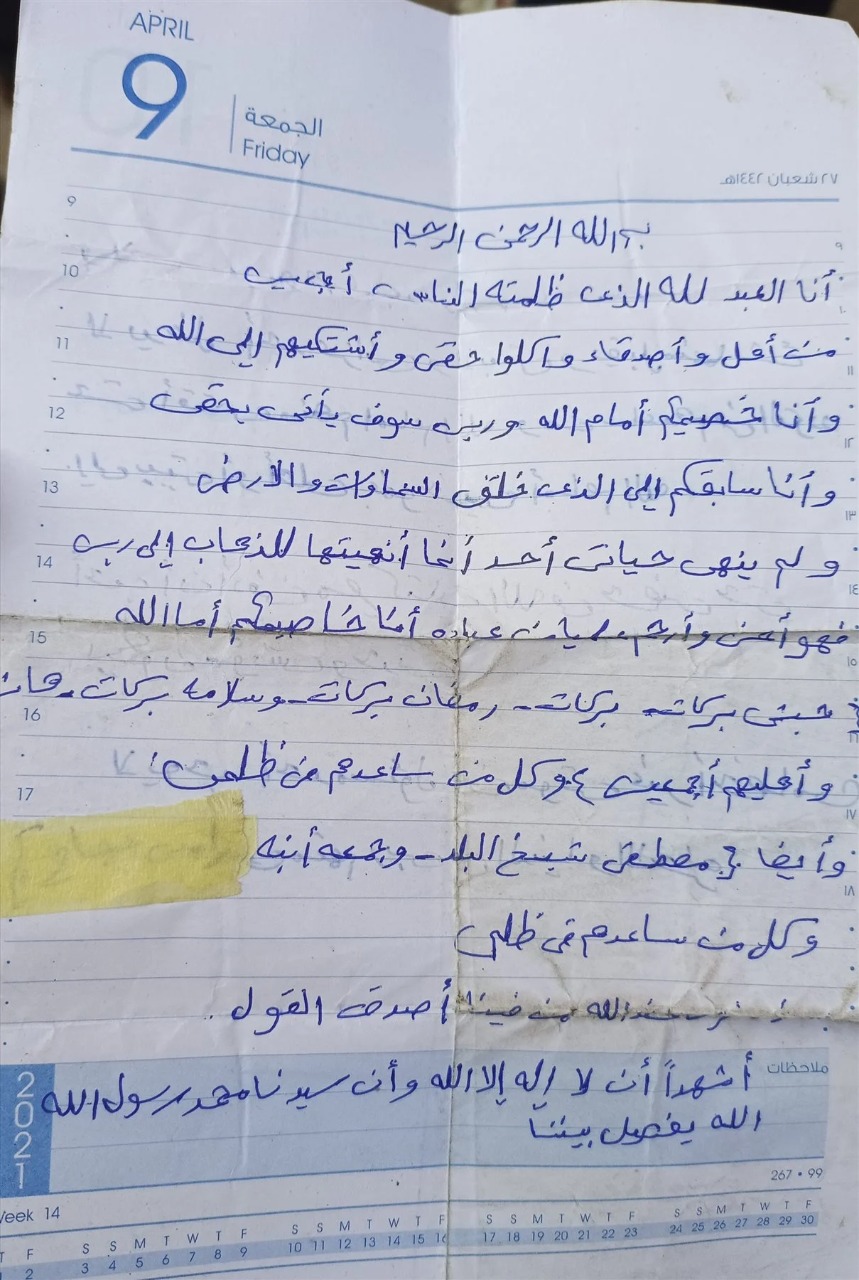 APRIL
9
الجمعة
Friday
٢٧ شعبان ١٤٤٢هـ
بسم الله الرحمن الرحيم
أنا العبد لله الذى ظلمته الناس أجمعين
من أهل وأصدقاء واكلوا حقى وأشتكيهم إلى الله
وأنا خصيمكم أمام الله وربى سوف يأتى بحقى
وأنا سابقكم إلى الذى خلق السماوات والأرض
ولم ينهى حياتى أحد أنما أنهيتها للذهاب إلى ربى
فهو أحن وأرحم من عباده أنا خاصيمكم أما الله
حبشى بركات - بركات - رمضان بركات - وسلامه بركات - هان
وأهليهم أجمعين وكل من ساعدهم فى ظلمى
وأيضا مصطفى شيخ البلد - وجمعه أبنه
وكل من ساعدهم فى ظلمى
عند الله من فينا أصدق القول
ملاحظات
أشهداً أن لا إله إلا الله وأن سيدنا محمد رسول الله
الله يفصل بيننا
2021
267 • 99
Week 14
T F S S M T W T F S S M T W T F S S M T W T F S S M T W T F
2 3 4 5 6 7 8 9 10 11 12 13 14 15 16 17 18 19 20 21 22 23 24 25 26 27 28 29 30